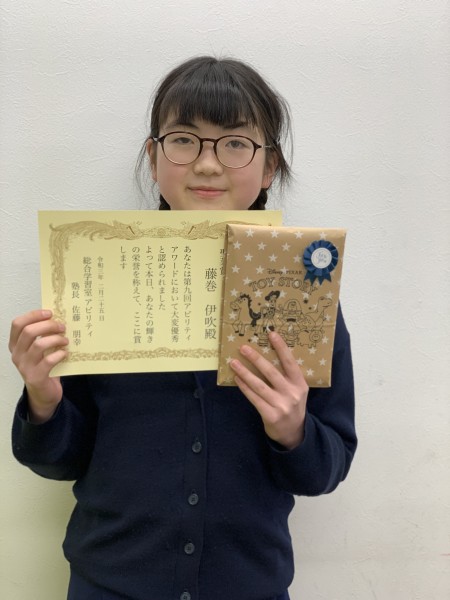 藤巻 伊吹殿
あなたは第九回アビリティ
アワードにおいて大変優秀
と認められました
よって本日、あなたの輝き
の栄誉を称えて、ここに賞
します
令和 二十五日
総合学習室 アビリティ
塾長 佐藤 明幸
Disney PIXAR
TOY STORY